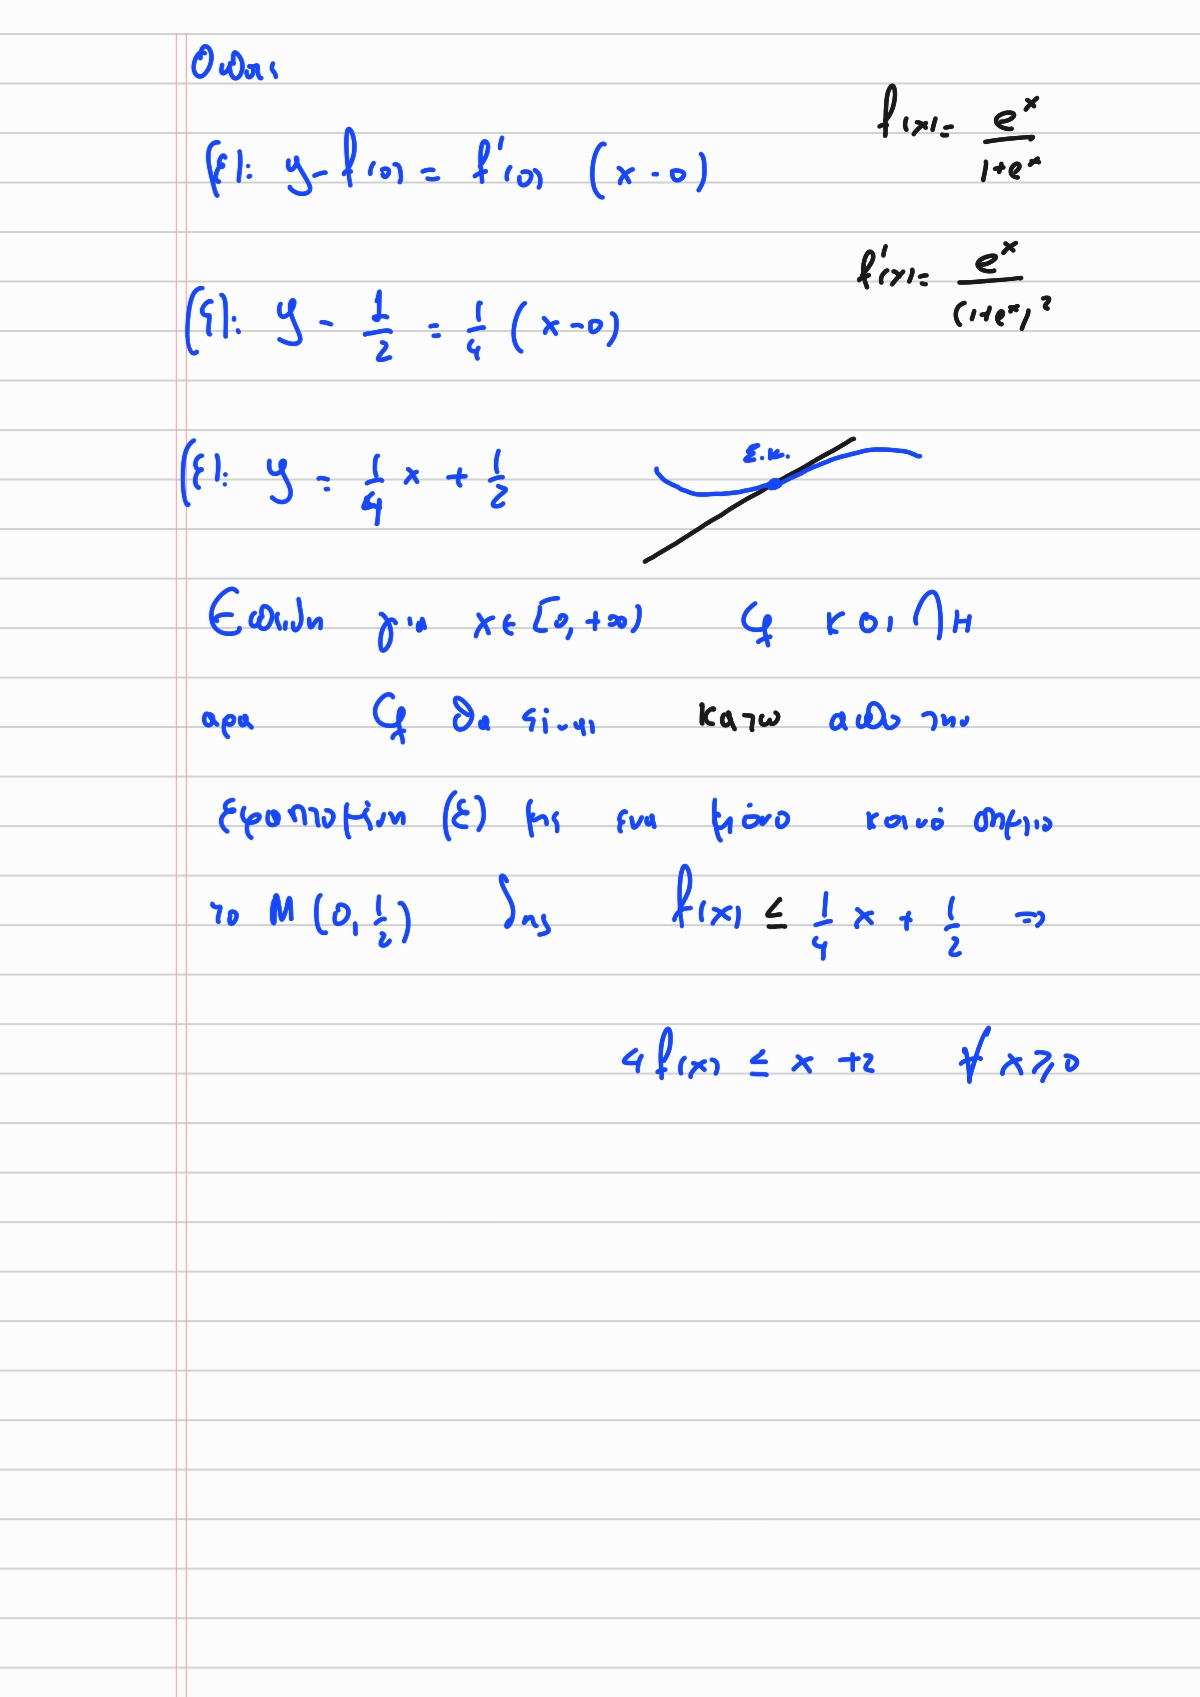 Οποτε
f(x) = e^x / (1+e^x)
(ε): y - f(0) = f'(0) (x - 0)
f'(x) = e^x / (1+e^x)^2
(ε): y - 1/2 = 1/4 (x - 0)
(ε): y = 1/4 x + 1/2
Σ.κ.
Επειδη για x ∈ [0, +∞) Cf κοιλη
αρα Cf θα ειναι κατω απο την
εφαπτομένη (ε) με ενα μόνο κοινό σημειο
το M (0, 1/2) δης f(x) ≤ 1/4 x + 1/2 ⇒
4f(x) ≤ x + 2 ∀ x ≥ 0